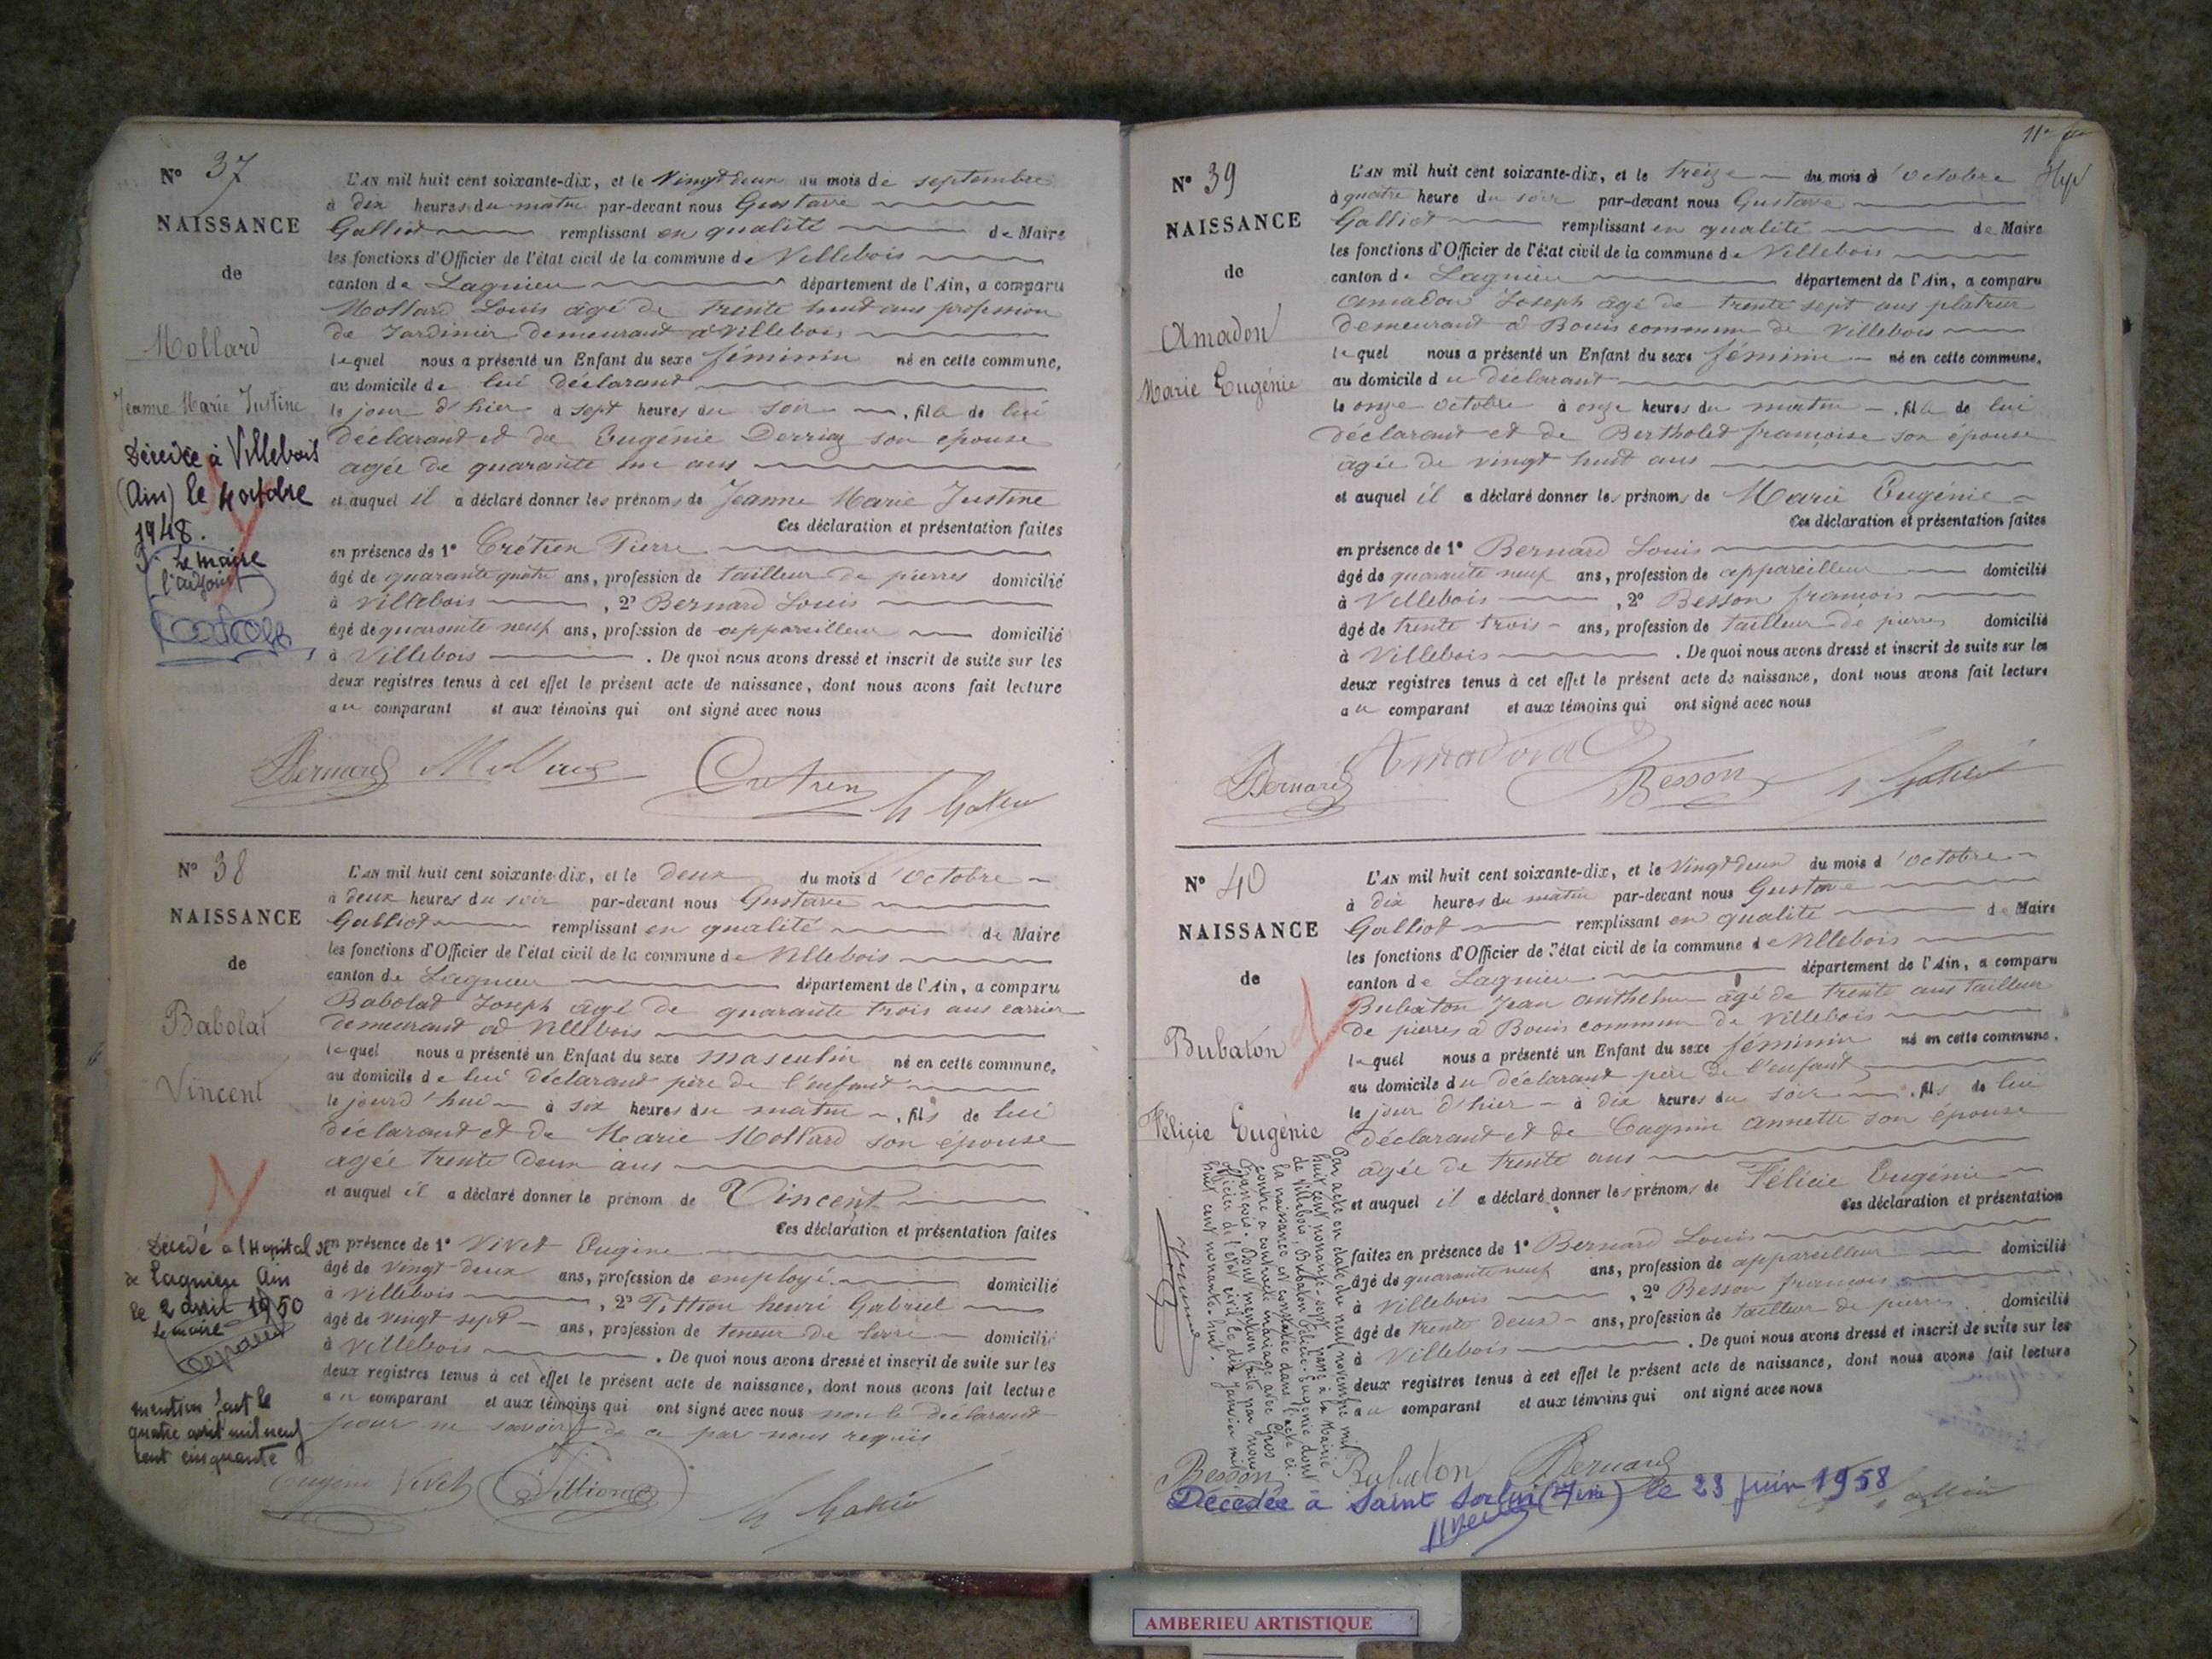 N° 37
NAISSANCE
de
Mollard
Jeanne Marie Justine
Décédée à Villebois
(Ain) le 4 octobre
1948.
Le maire
l'adjoint
L'AN mil huit cent soixante-dix, et le Vingt deux du mois de septembre
à dix heures du matin par-devant nous Gustave
Galliot remplissant en qualité de Maire
les fonctions d'Officier de l'état civil de la commune de Villebois
canton de Lagnieu département de l'Ain, a comparu
Mollard Louis âgé de trente huit ans profession
de Jardinier demeurant à Villebois
lequel nous a présenté un Enfant du sexe féminin né en cette commune,
au domicile de lui déclarant
le jour d'hier à sept heures du soir, fille de lui
déclarant et de Eugénie Derriaz son épouse
agée de quarante un ans
et auquel il a déclaré donner les prénoms de Jeanne Marie Justine
Ces déclaration et présentation faites
en présence de 1° Crétien Pierre
âgé de quarante quatre ans, profession de tailleur de pierres domicilié
à Villebois, 2° Bernard Louis
âgé de quarante neuf ans, profession de appareilleur domicilié
à Villebois. De quoi nous avons dressé et inscrit de suite sur les
deux registres tenus à cet effet le présent acte de naissance, dont nous avons fait lecture
au comparant et aux témoins qui ont signé avec nous
Bernard Mollard Cretien G Galliot
N° 38
NAISSANCE
de
Babolat
Vincent
Décédé à l'Hopital
de Lagnieu Ain
le 2 avril 1950
Le maire
mention fait le
quatre avril mil neuf
cent cinquante
L'AN mil huit cent soixante-dix, et le deux du mois d'octobre
à deux heures du soir par-devant nous Gustave
Galliot remplissant en qualité de Maire
les fonctions d'Officier de l'état civil de la commune de Villebois
canton de Lagnieu département de l'Ain, a comparu
Babolat Joseph agé de quarante trois ans carrier
demeurant à Villebois
lequel nous a présenté un Enfant du sexe masculin né en cette commune,
au domicile de lui déclarant père de l'enfant
le jourd'hui à six heures du matin, fils de lui
déclarant et de Marie Mollard son épouse
agée trente deux ans
et auquel il a déclaré donner le prénom de Vincent
Ces déclaration et présentation faites
en présence de 1° Vivet Eugène
âgé de vingt deux ans, profession de employé domicilié
à Villebois, 2° Tittion henri Gabriel
âgé de vingt sept ans, profession de teneur de livre domicilié
à Villebois. De quoi nous avons dressé et inscrit de suite sur les
deux registres tenus à cet effet le présent acte de naissance, dont nous avons fait lecture
au comparant et aux témoins qui ont signé avec nous non le déclarant
pour ne savoir de ce par nous requis
Eugène Vivet Tittion G Galliot
11e
N° 39
NAISSANCE
de
Amadon
Marie Eugénie
L'AN mil huit cent soixante-dix, et le treize du mois d'octobre
à quatre heure du soir par-devant nous Gustave
Galliot remplissant en qualité de Maire
les fonctions d'Officier de l'état civil de la commune de Villebois
canton de Lagnieu département de l'Ain, a comparu
Amadon Joseph agé de trente sept ans platrier
demeurant à Bouis commune de Villebois
lequel nous a présenté un Enfant du sexe féminin né en cette commune,
au domicile du déclarant
le onze octobre à onze heures du matin, fille de lui
déclarant et de Bertholet françoise son épouse
agée de vingt huit ans
et auquel il a déclaré donner les prénoms de Marie Eugénie
Ces déclaration et présentation faites
en présence de 1° Bernard Louis
âgé de quarante neuf ans, profession de appareilleur domicilié
à Villebois, 2° Besson françois
âgé de trente trois ans, profession de tailleur de pierres domicilié
à Villebois. De quoi nous avons dressé et inscrit de suite sur les
deux registres tenus à cet effet le présent acte de naissance, dont nous avons fait lecture
au comparant et aux témoins qui ont signé avec nous
Bernard Amadon Besson G Galliot
N° 40
NAISSANCE
de
Bubaton
Félicie Eugénie
L'AN mil huit cent soixante-dix, et le Vingt deux du mois d'octobre
à dix heures du matin par-devant nous Gustave
Galliot remplissant en qualité de Maire
les fonctions d'Officier de l'état civil de la commune de Villebois
canton de Lagnieu département de l'Ain, a comparu
Bubaton Jean anthelme agé de trente ans tailleur
de pierres à Bouis commune de Villebois
lequel nous a présenté un Enfant du sexe féminin né en cette commune,
au domicile du déclarant père de l'enfant
le jour d'hier à dix heures du soir, fils de lui
déclarant et de Cagnin annette son épouse
agée de trente ans
et auquel il a déclaré donner les prénoms de Félicie Eugénie
Ces déclaration et présentation
faites en présence de 1° Bernard Louis
âgé de quarante neuf ans, profession de appareilleur domicilié
à Villebois, 2° Besson francois
âgé de trente deux ans, profession de tailleur de pierres domicilié
à Villebois. De quoi nous avons dressé et inscrit de suite sur les
deux registres tenus à cet effet le présent acte de naissance, dont nous avons fait lecture
au comparant et aux témoins qui ont signé avec nous
Par acte en date du neuf novembre mil
huit cent nonante-sept, passé à la Mairie
de Villebois, Bubaton Félicie-Eugénie dont
la naissance est constatée dans l'acte ci-
contre a contracté mariage avec Gros
François. Dont mention faite par nous
officier de l'état civil, le dix janvier mil
huit cent nonante-huit.
Besson Bubaton Bernard Galliot
Décédée à Saint Sorlin (Ain) le 23 juin 1958
AMBERIEU ARTISTIQUE